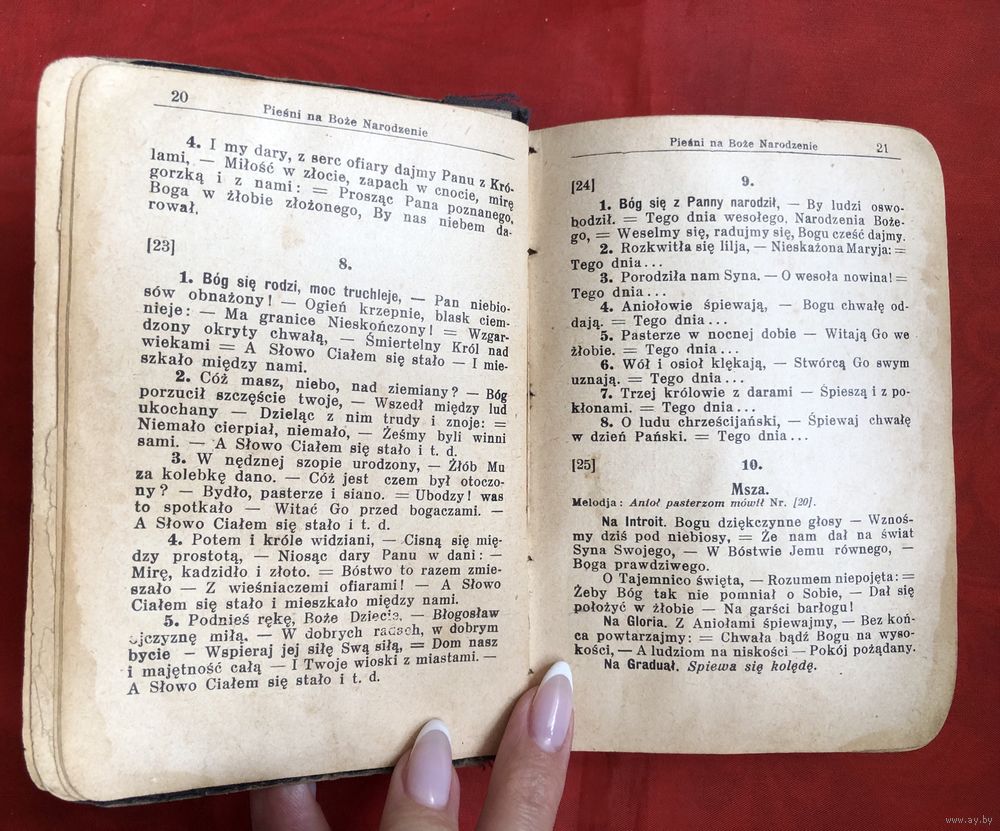 20
Pieśni na Boże Narodzenie
4. I my dary, z serc ofiary dajmy Panu z Kró-
lami, — Miłość w złocie, zapach w cnocie, mirę
gorzką i z nami: = Prosząc Pana poznanego,
Boga w żłobie złożonego, By nas niebem da-
rował.
[23]
8.
1. Bóg się rodzi, moc truchleje, — Pan niebio-
sów obnażony! — Ogień krzepnie, blask ciem-
nieje: — Ma granice Nieskończony! = Wzgar-
dzony okryty chwałą, — Śmiertelny Król nad
wiekami = A Słowo Ciałem się stało — I mie-
szkało między nami.
2. Cóż masz, niebo, nad ziemiany? — Bóg
porzucił szczęście twoje, — Wszedł między lud
ukochany — Dzieląc z nim trudy i znoje: =
Niemało cierpiał, niemało, — Żeśmy byli winni
sami. — A Słowo Ciałem się stało i t. d.
3. W nędznej szopie urodzony, — Żłób Mu
za kolebkę dano. — Cóż jest czem był otoczo-
ny? — Bydło, pasterze i siano. = Ubodzy! was
to spotkało — Witać Go przed bogaczami. —
A Słowo Ciałem się stało i t. d.
4. Potem i króle widziani, — Cisną się mię-
dzy prostotą, — Niosąc dary Panu w dani: —
Mirę, kadzidło i złoto. = Bóstwo to razem zmie-
szało — Z wieśniaczemi ofiarami! — A Słowo
Ciałem się stało i mieszkało między nami.
5. Podnieś rękę, Boże Dziecię. — Błogosław
ojczyznę miłą. — W dobrych radach, w dobrym
bycie — Wspieraj jej siłę Swą siłą, = Dom nasz
i majętność całą — I Twoje wioski z miastami. —
A Słowo Ciałem się stało i t. d.
Pieśni na Boże Narodzenie
21
[24]
9.
1. Bóg się z Panny narodził, — By ludzi oswo-
bodził. = Tego dnia wesołego, Narodzenia Boże-
go, = Weselmy się, radujmy się, Bogu cześć dajmy.
2. Rozkwitła się lilja, — Nieskażona Maryja: =
Tego dnia...
3. Porodziła nam Syna. — O wesoła nowina! =
Tego dnia...
4. Aniołowie śpiewają, — Bogu chwałę od-
dają. = Tego dnia...
5. Pasterze w nocnej dobie — Witają Go we
żłobie. = Tego dnia...
6. Wół i osioł klękają, — Stwórcą Go swym
uznają. = Tego dnia...
7. Trzej królowie z darami — Śpieszą i z po-
kłonami. = Tego dnia...
8. O ludu chrześcijański, — Śpiewaj chwałę
w dzień Pański. = Tego dnia...
[25]
10.
Msza.
Melodja: Anioł pasterzom mówił Nr. [20].
Na Introit. Bogu dziękczynne głosy — Wznoś-
my dziś pod niebiosy, = Że nam dał na świat
Syna Swojego, — W Bóstwie Jemu równego, —
Boga prawdziwego.
O Tajemnico święta, — Rozumem niepojęta: =
Żeby Bóg tak nie pomniał o Sobie, — Dał się
położyć w żłobie — Na garści barłogu!
Na Gloria. Z Aniołami śpiewajmy, — Bez koń-
ca powtarzajmy: = Chwała bądź Bogu na wyso-
kości, — A ludziom na niskości — Pokój pożądany.
Na Graduał. Spiewa się kolędę.
www.ay.by